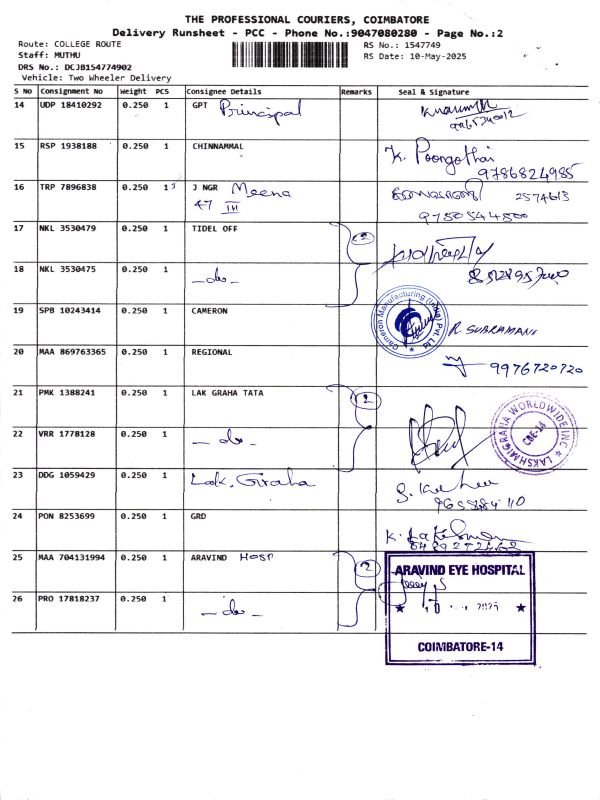 THE PROFESSIONAL COURIERS, COIMBATORE
Delivery Runsheet - PCC - Phone No.:9047080280 - Page No.:2
Route: COLLEGE ROUTE RS No.: 1547749
Staff: MUTHU RS Date: 10-May-2025
DRS No.: DCJB154774902
Vehicle: Two Wheeler Delivery
S No Consignment No Weight PCS Consignee Details Remarks Seal & Signature
14 UDP 18410292 0.250 1 GPT Principal
15 RSP 1938188 0.250 1 CHINNAMMAL K. Poongothai
9786824985
16 TRP 7896838 0.250 1 J NGR Meena 2574613
47 III
17 NKL 3530479 0.250 1 TIDEL OFF 2
18 NKL 3530475 0.250 1 -do-
19 SPB 10243414 0.250 1 CAMERON Cameron Manufacturing (India) Pvt. Ltd R. SUBRAMANI
20 MAA 869763365 0.250 1 REGIONAL 9976720720
21 PMK 1388241 0.250 1 LAK GRAHA TATA 2 LAKSHMIGRAHA WORLDWIDE INC
CBE-14
22 VRR 1778128 0.250 1 -do-
23 DDG 1059429 0.250 1 Lak. Graha
24 PON 8253699 0.250 1 GRD
25 MAA 704131994 0.250 1 ARAVIND HOSP 2 ARAVIND EYE HOSPITAL
2025
26 PRO 17818237 0.250 1 -do-
COIMBATORE-14